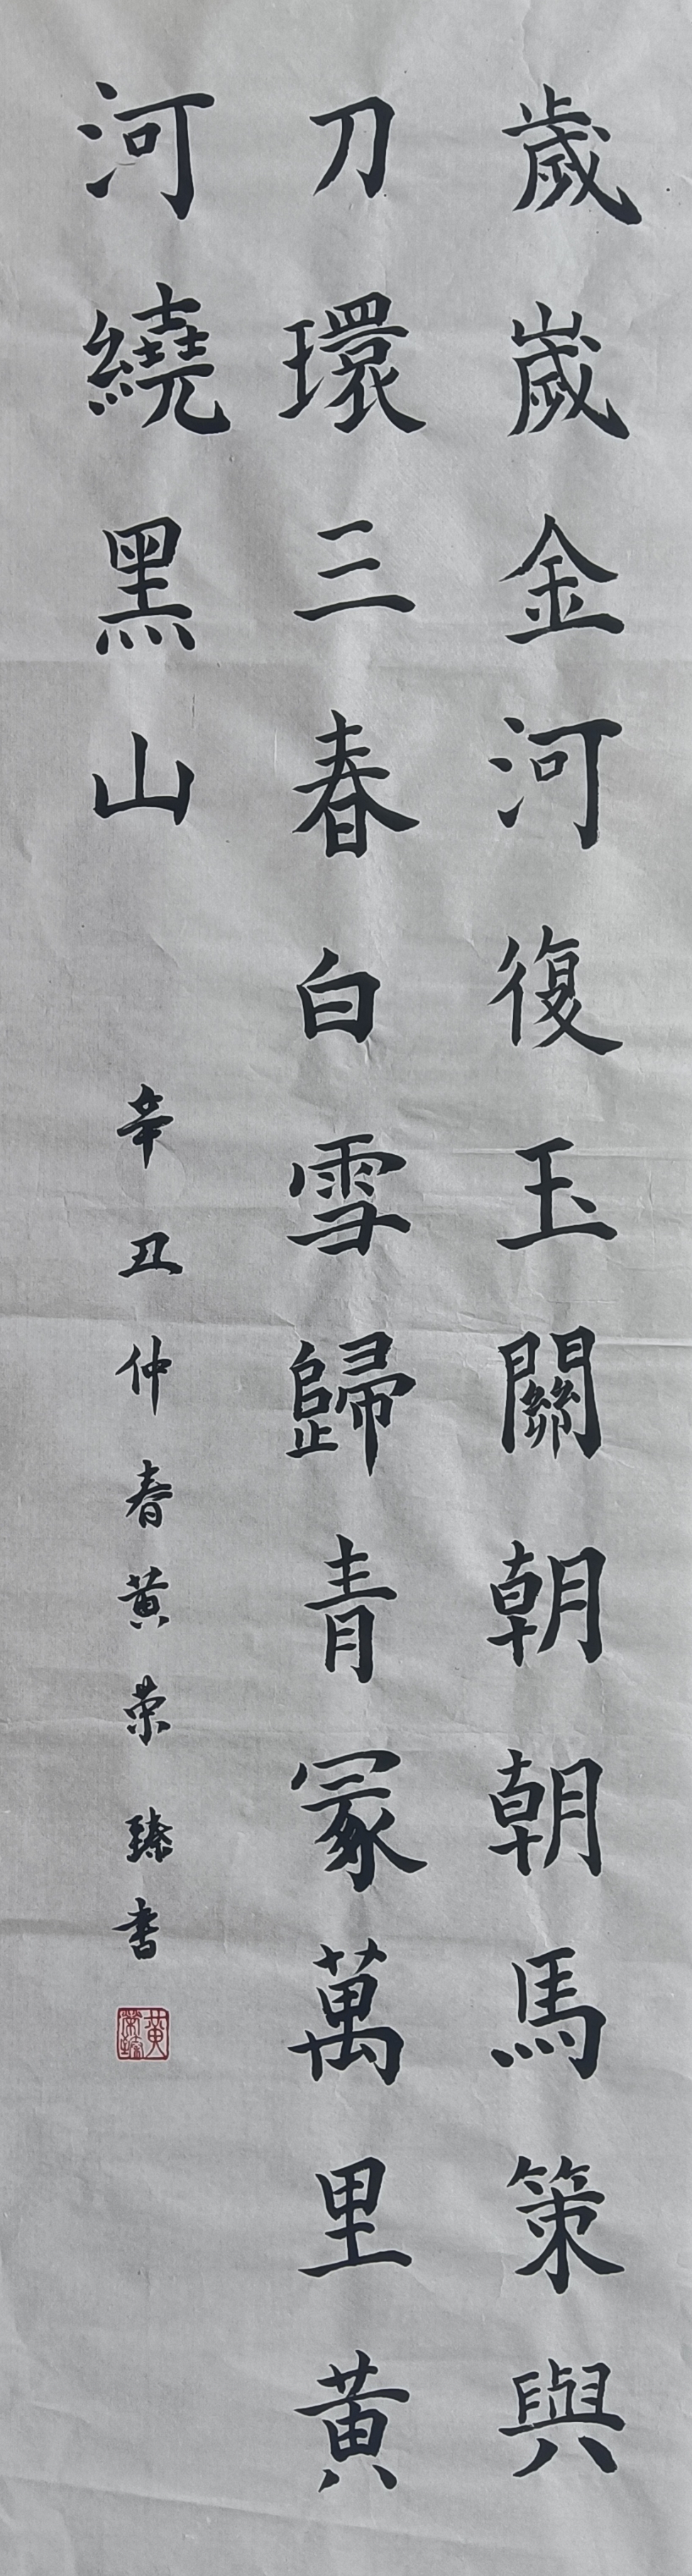 歲嵗金河復玉關朝朝馬策與
刀環三春白雪歸青冡萬里黄
河繞黑山
辛丑仲春黄荣臻书
黄榮臻